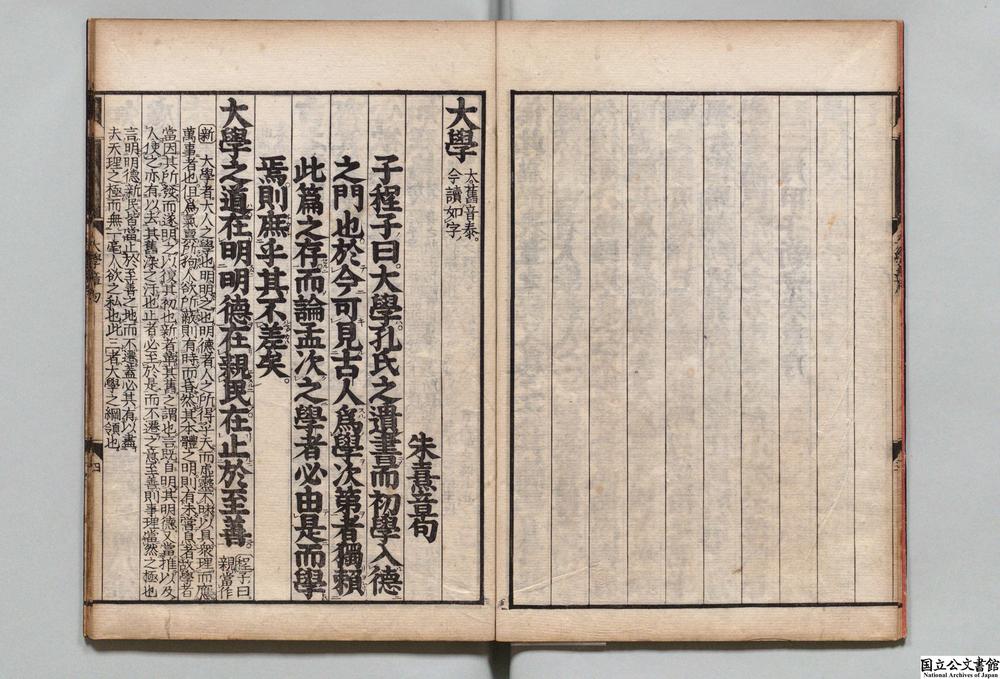 大學 大舊音泰。
今讀如字。
朱熹章句
子程子曰。大學孔氏之遺書而初學入德
之門也於今可見古人爲學次第者獨賴
此篇之存而論孟次之學者必由是而學
焉則庶乎其不差矣。
大學之道在明明德在親民在止於至善。 程子曰
親當作
新 大學者大人之學也明明之也明德者人之所得乎天而虛靈不昧以具衆理而應
萬事者也但爲氣稟所拘人欲所蔽則有時而昏然其本體之明則有未嘗息者故學者
當因其所發而遂明之以復其初也新者革其舊之謂也言既自明其明德又當推以及
人使之亦有以去其舊染之汙也止者必至於是而不遷之意至善則事理當然之極也
言明明德新民皆當止於至善之地而不遷蓋必其有以盡
夫天理之極而無一毫人欲之私也此三者大學之綱領也
四
国立公文書館
National Archives of Japan